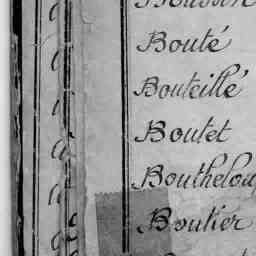 Bouté
Bouteillé
Boutet
Bouthelou
Boutier